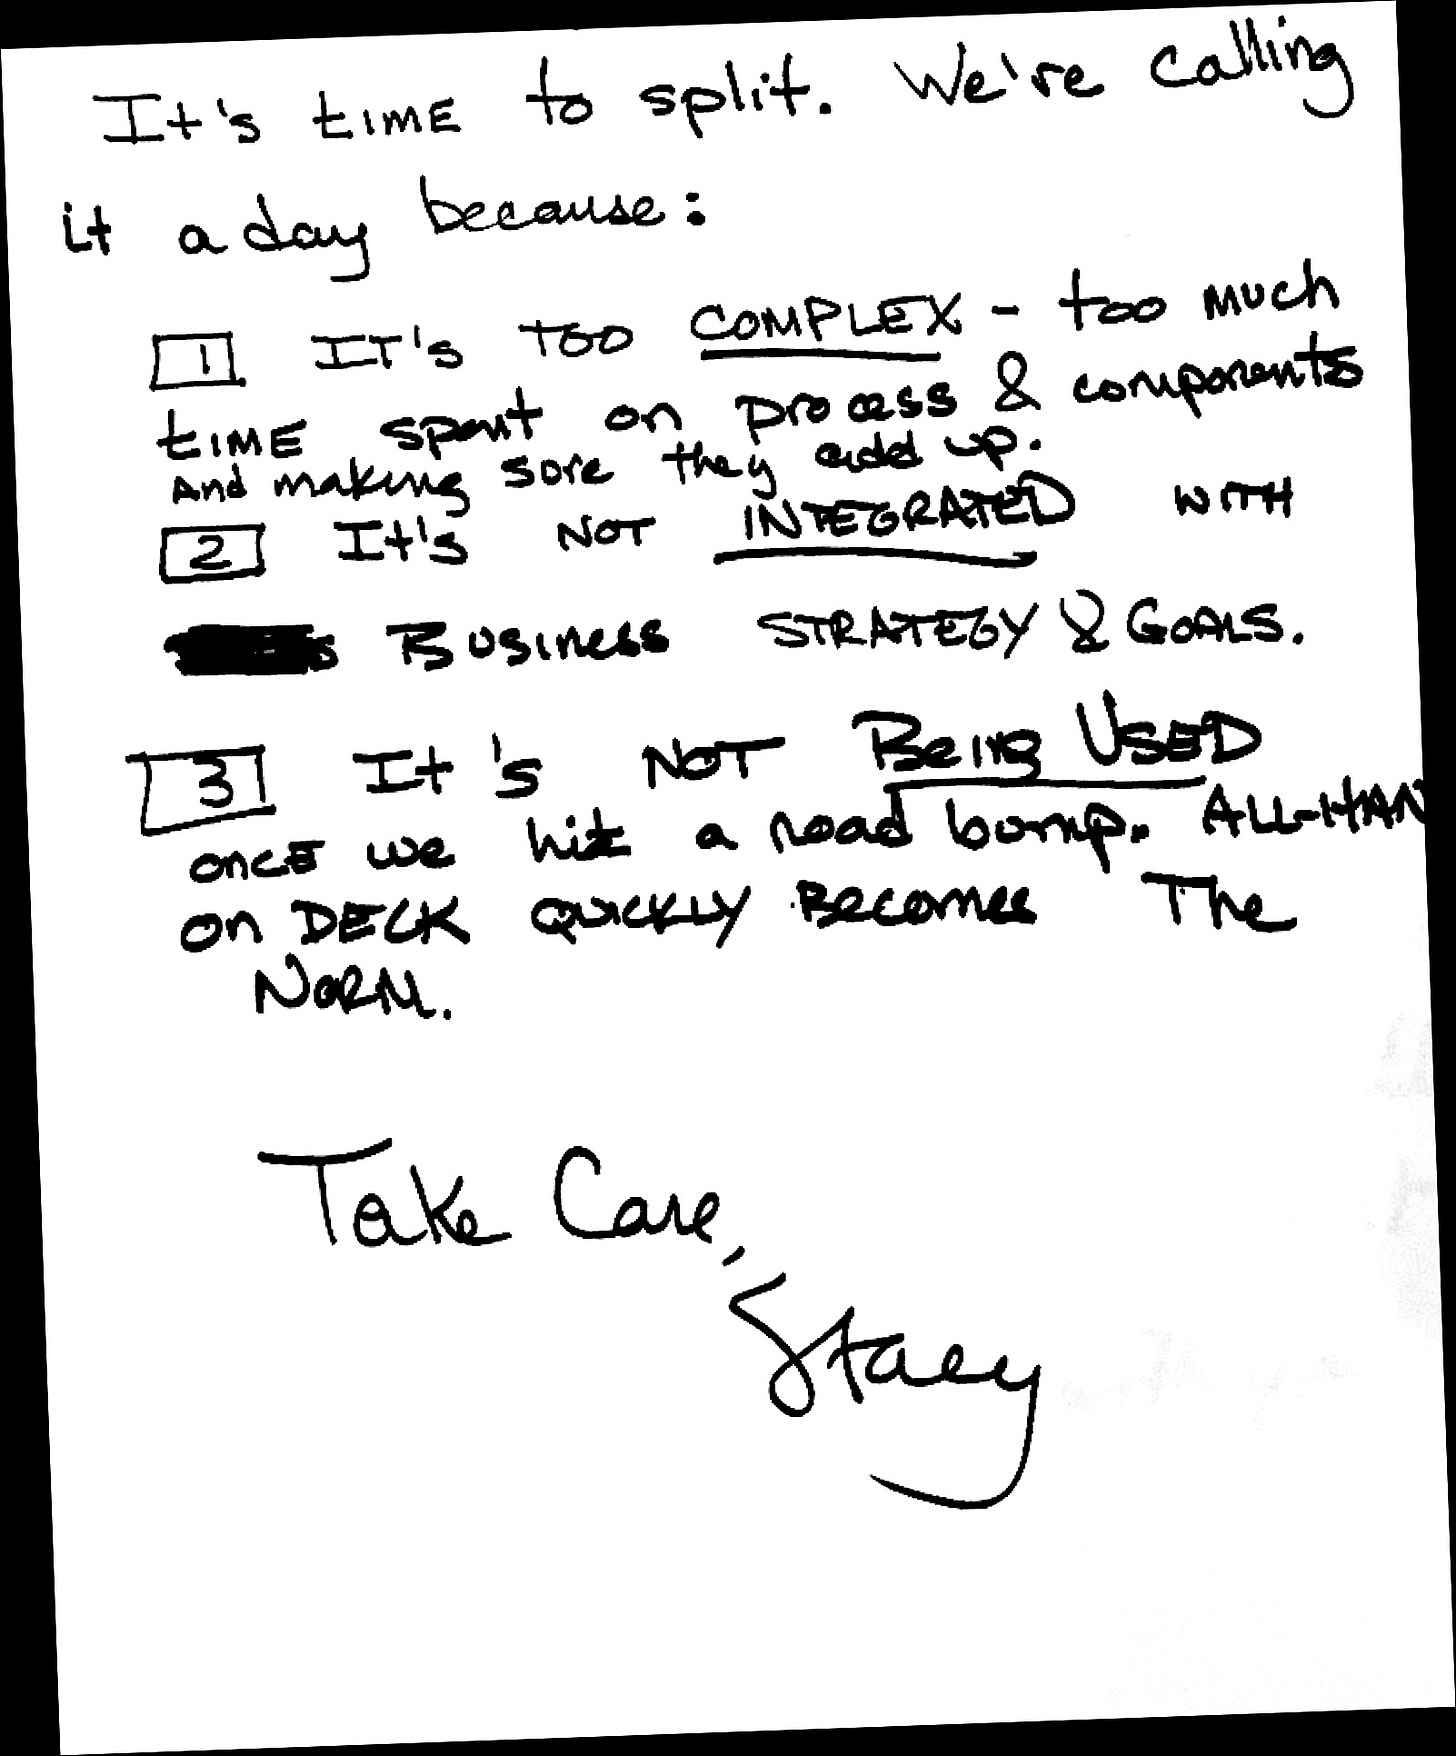 It's tIME to split. We're calling
it a day because:
1 IT's TOO COMPLEX - too much
tIME spent on process & components
And making sure they add up.
2 It's NOT INTEGRATED WITH
Business STRATEGY & GOALS.
3 It's NOT Being USED
oncE we hit a road bump. ALL-HAN
on DECK QUICKLY Becomes The
NORM.
Take Care,
Stacy